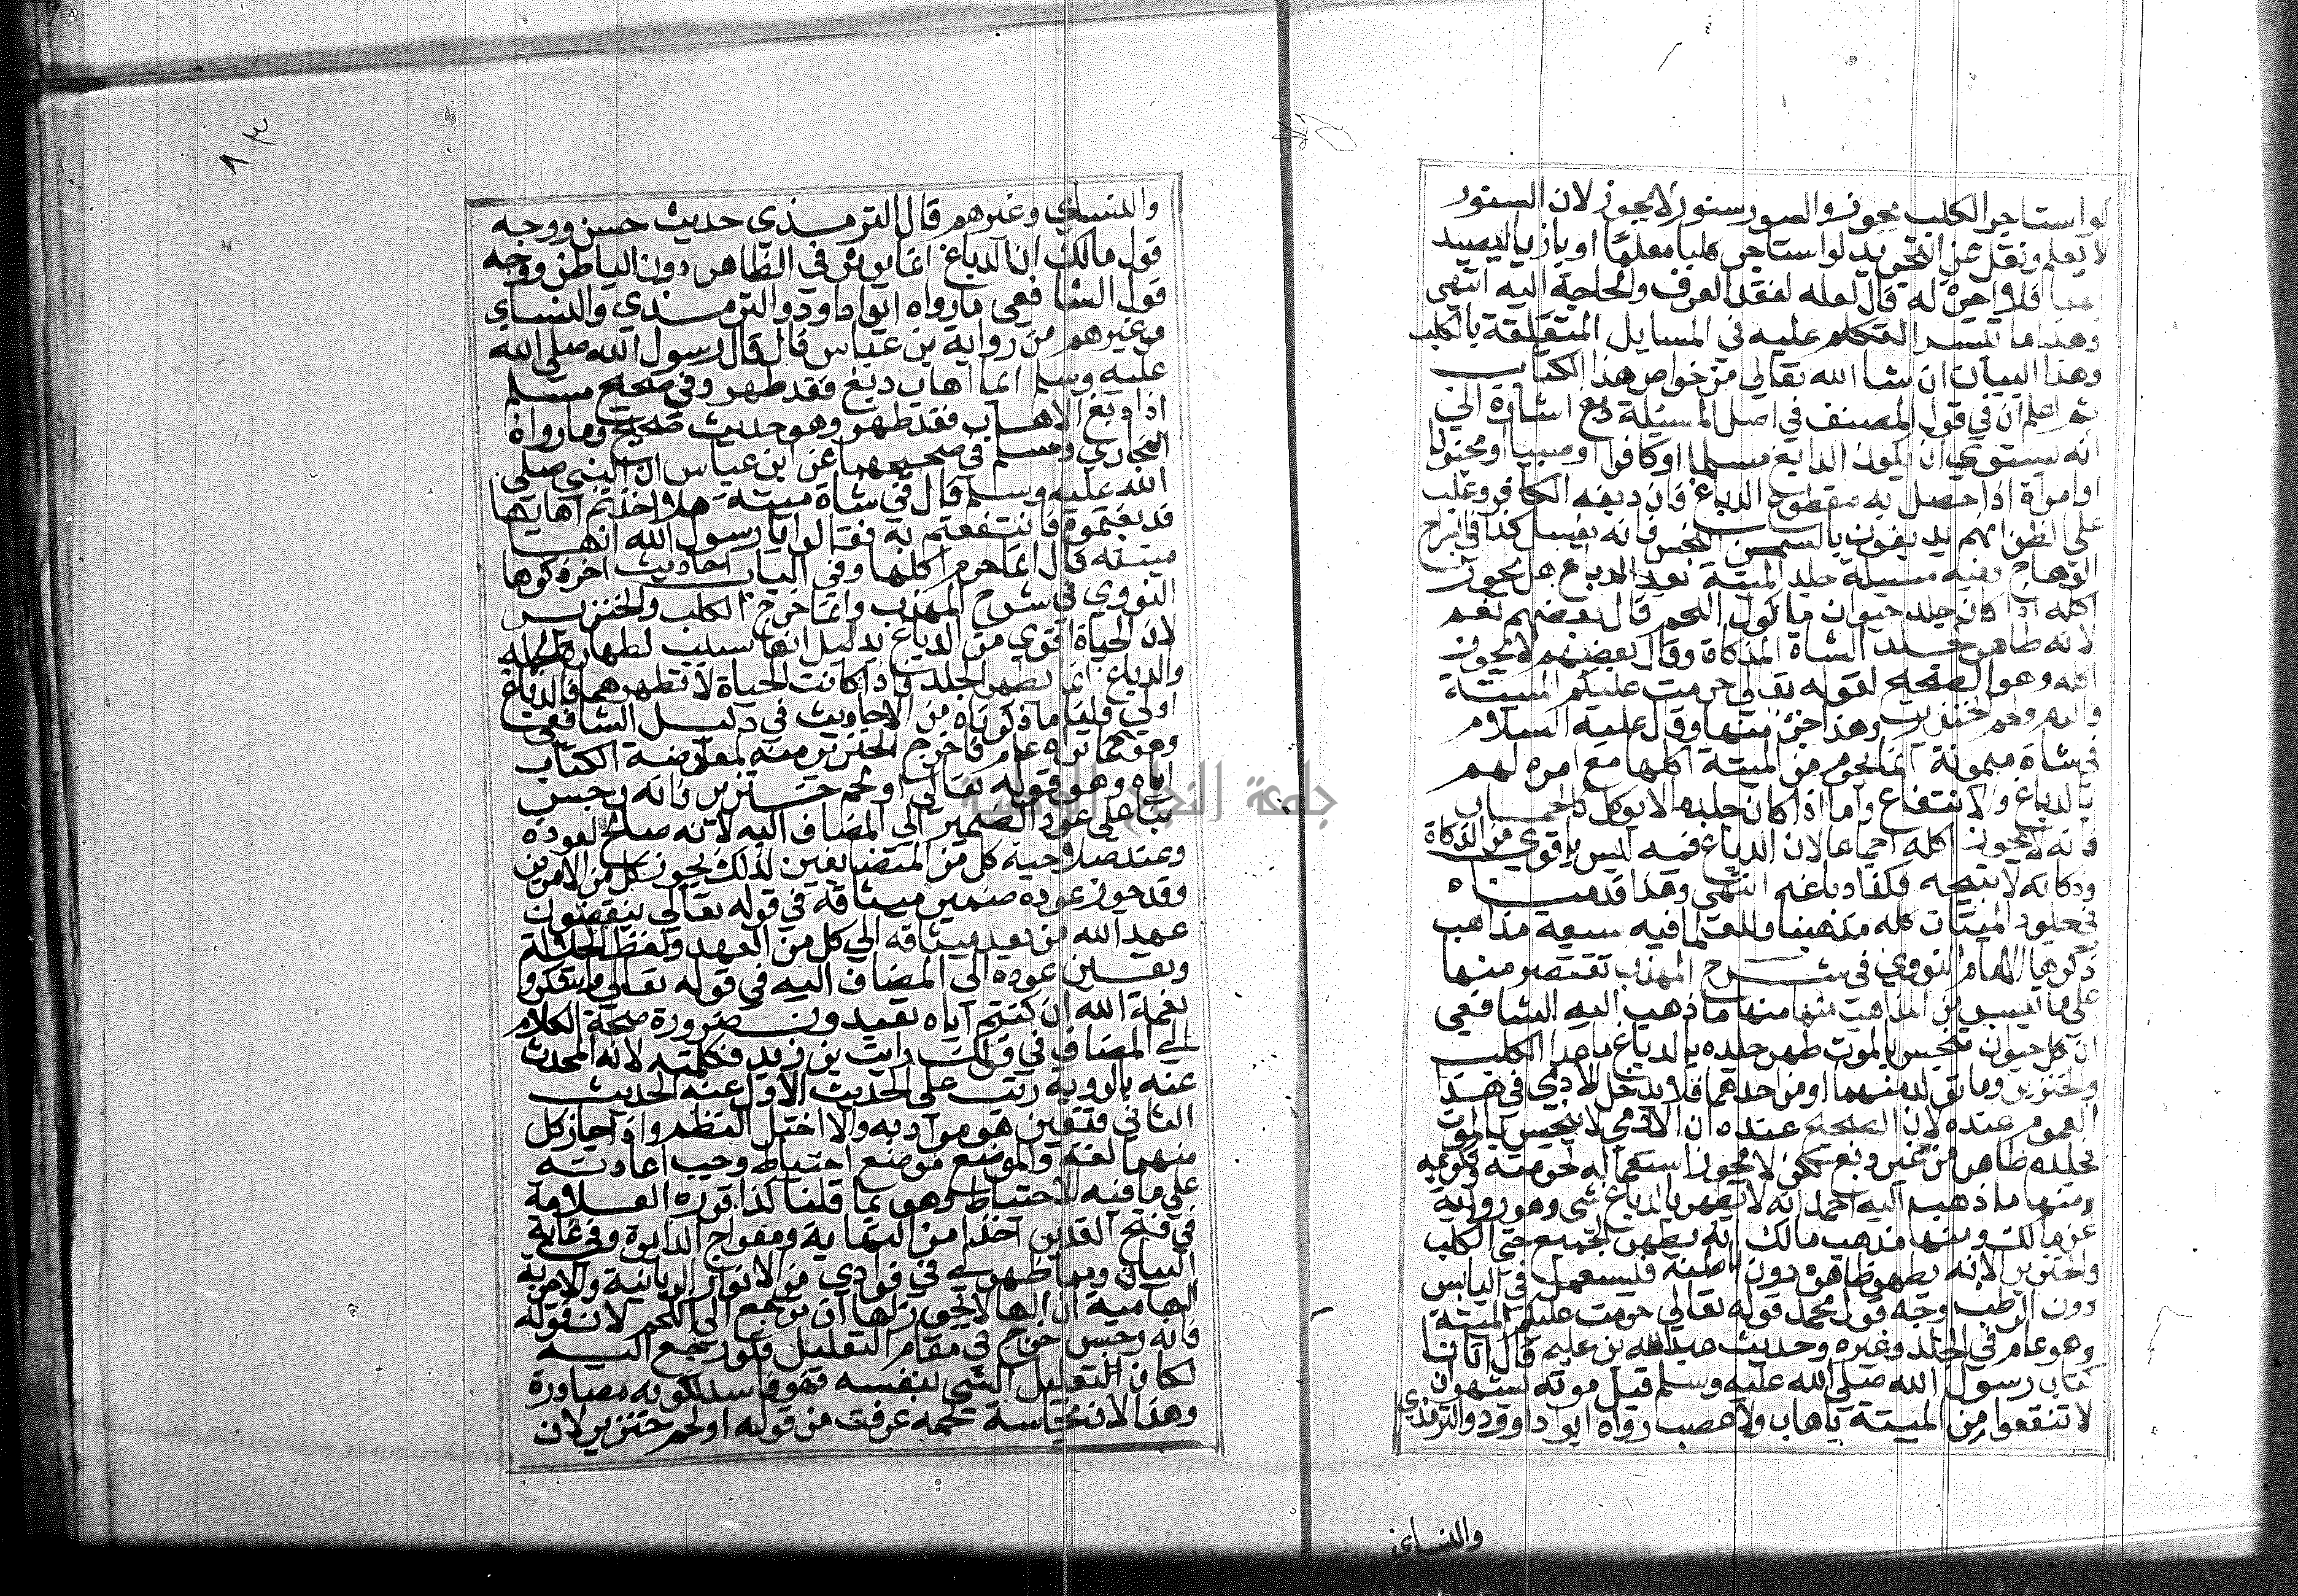 لو استاجر الكلب يجوز والسور سنور لا يجوز لان السنور
لا يعلم ونقل عن التجريد لو استاجر كلبا معلما او بازيا ليصيد
بهما فلا اجرة له قال لعله لفقد العرف والحاجة اليه انتهى
وهذا ما تيسر التكلم عليه في المسايل المتعلقة بالكلب
وهذا البيان ان شا الله تعالى من خواص هذا الكتاب
ثم اعلم ان في قول المصنف في اصل المسئلة دبغ اشارة الى
انه يستوي ان يكون الدابغ مسلما او كافرا او صبيا او مجنونا
او امراة اذا حصل به مقصود الدباغ فان دبغه الكافر وغلب
على الظن انهم يدبغون بالسمن النجس فانه يغسل كذا في السراج
الوهاج بقيه مسيلة جلد الميتة بعد الدباغ هل يجوز
اكله اذا كان جلد حيوان ماكول اللحم قال بعضهم نعم
لانه طاهر كجلد الشاة المذكاة وقال بعضهم لا يجوز
اكله وهو الصحيح لقوله تعالى حرمت عليكم الميتة
والدم ولحم الخنزير وهذا جزء منها وقال عليه السلام
في شاة ميمونة انما يحرم من الميتة اكلها مع امره لهم
بالدباغ والانتفاع واما اذا كان جلد ما لا يوكل كالحمار
فانه لا يجوز اكله اجماعا لان الدباغ فيه ليس باقوى من الذكاة
وذكاته لا تبيحه فكذا دباغه انتهى وهذا قدمناه
في جلود الميتات كله مذهبنا وللعلما فيه سبعة مذاهب
ذكرها الامام النووي في شرح المهذب نقتصر منها
على ما تيسر من المذاهب منها منها ما ذهب اليه الشافعي
ان كل حيوان ينجس بالموت طهر جلده بالدباغ ما عدا الكلب
والخنزير وما تولد منهما او من احدهما فلا يدخل الادمي في هذا
العموم عنده لان الصحيح عنده ان الادمي لا ينجس بالموت
فجلده طاهر من غير دبغ لكن لا يجوز استعماله لحرمته وتكريمه
ومنها ما ذهب اليه احمد انه لا يطهر بالدباغ شي وهو رواية
عن مالك ومنها مذهب مالك انه يطهر الجميع حتى الكلب
والخنزير الا انه يطهر ظاهره دون باطنه فيستعمل في اليابس
دون الرطب وجه قول محمد قوله تعالى حرمت عليكم الميتة
وهو عام في الجلد وغيره وحديث عبد الله بن عليم قال اتانا
كتاب رسول الله صلى الله عليه وسلم قبل موته بشهرين
لا تنتفعوا من الميتة باهاب ولا عصب رواه ابو داوود والترمذي
والنساي
والنساي وغيرهم قال الترمذي حديث حسن ووجه
قول مالك ان الدباغ انما يوثر في الظاهر دون الباطن ووجه
قول الشافعي ما رواه ابوا داوود والترمذي والنساي
وغيرهم من رواية بن عباس قال قال رسول الله صلى الله
عليه وسلم ايما اهاب دبغ فقد طهر وفي صحيح مسلم
اذا دبغ الاهاب فقد طهر وهو حديث صحيح وما رواه
البخاري ومسلم في صحيحهما عن ابن عباس ان النبي صلى
الله عليه وسلم قال في شاة ميتة هلا اخذتم اهابها
فدبغتموه فانتفعتم به فقالوا يا رسول الله انها
ميتته قال انما حرم اكلها وفي الباب احاديث اخر ذكرها
النووي في شرح المهذب وانما خرج الكلب والخنزير
لان الحياة اقوى من الدباغ بدليل انها سبب لطهارة الجملة
والدباغ انما يطهر الجلد فاذا كانت الحياة لا تطهرهما فالدباغ
اولى ولنا ما ذكرناه من الاحاديث في دليل الشافعي
وهو كما تراه عام فاخرج الخنزير منه لمعارضة الكتاب
اياه وهو قوله تعالى او لحم خنزير فانه رجس
بنا على عود الضمير الى المضاف اليه لانه صالح لعوده
وعند صلاحية كل من المتضايفين لذلك يجوز كل من الامرين
وقد جوز عوده ضمير ميثاقه في قوله تعالى ينقضون
عهد الله من بعد ميثاقه الى كل من العهد ولفظ الجلالة
وتعين عوده الى المضاف اليه في قوله تعالى واشكروا
نعمة الله ان كنتم اياه تعبدون ضرورة صحة الكلام
الى المضاف في قولك رايت بن زيد فكلمته لانه المحدث
عنه بالروية رتب على الحديث الاول عنه الحديث
الثاني فتعين هو مرادبه والا اختل النظم واذا جاز كل
منهما لغة والموضع موضع احتياط وجب اعادته
على ما فيه الاحتياط وهو بما قلنا كذا قرره العلامة
في فتح القدير اخذا من النهاية ومعراج الدارية وفي غاية
البيان ومما ظهر لي في فوادي من الانوار الربانية والاجوبة
الهامية ان الها لا يجوز لها ان ترجع الى اللحم لان قوله
فانه رجس خرج في مقام التعليل فلو رجع اليه
لكان التعليل الشي بنفسه فهو فاسد لكونه مصادرة
وهذا لان نجاسة لحمه عرفت من قوله او لحم خنزير لان
جامعة النجاح الوطنية